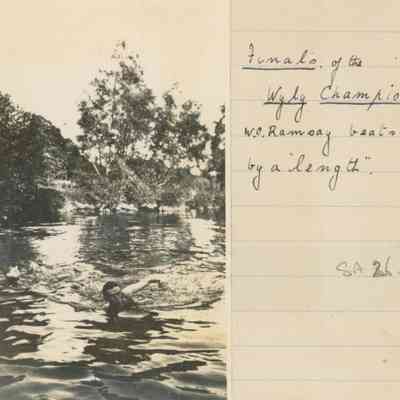 Finals of the
Wyly Champio
W.O. Ramsay beats
by a "length".
SA 26